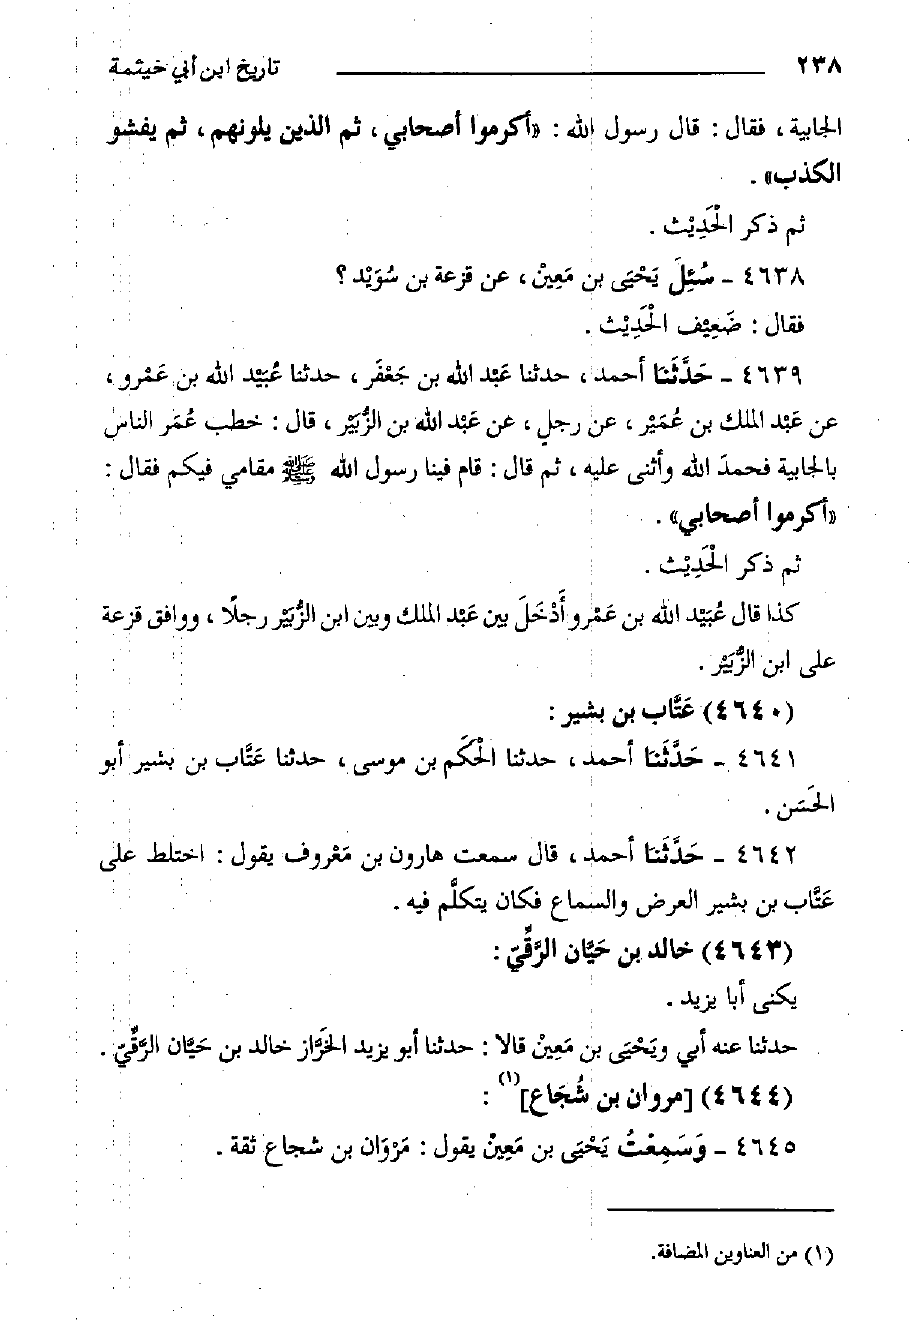 ٢٣٨ تاريخ ابن أبي خيثمة
الجابية ، فقال : قال رسول الله : «أكرموا أصحابي ، ثم الذين يلونهم ، ثم يفشو
الكذب» .
ثم ذكر الْحَدِيْث .
٤٦٣٨ - سُئِلَ يَحْيَى بن مَعِيْن ، عن قزعة بن سُوَيْد ؟
فقال : ضَعِيْف الْحَدِيْث .
٤٦٣٩ - حَدَّثَنَا أحمد ، حدثنا عَبْد الله بن جَعْفَر ، حدثنا عُبَيْد الله بن عَمْرو ،
عن عَبْد الملك بن عُمَيْر ، عن رجلٍ ، عن عَبْد الله بن الزُّبَيْر ، قال : خطب عُمَر الناس
بالجابية فحمدَ الله وأثنى عليه ، ثم قال : قام فينا رسول الله ﷺ مقامي فيكم فقال :
«أكرموا أصحابي» .
ثم ذكر الْحَدِيْث .
كذا قال عُبَيْد الله بن عَمْرو أَدْخَلَ بين عَبْد الملك وبين ابن الزُّبَيْر رجلًا ، ووافق قزعة
على ابن الزُّبَيْر .
(٤٦٤٠) عَتَّاب بن بشير :
٤٦٤١ - حَدَّثَنَا أحمد ، حدثنا الْحَكَم بن موسى ، حدثنا عَتَّاب بن بشير أبو
الحَسَن .
٤٦٤٢ - حَدَّثَنَا أحمد ، قال سمعت هارون بن مَعْروف يقول : اختلط على
عَتَّاب بن بشير العرض والسماع فكان يتكلَّم فيه .
(٤٦٤٣) خالد بن حَيَّان الرَّقِّيّ :
يكنى أبا يزيد .
حدثنا عنه أبي ويَحْيَى بن مَعِيْنْ قالا : حدثنا أبو يزيد الخَرَّاز خالد بن حَيَّان الرَّقِّيّ .
(٤٦٤٤) [مروان بن شُجَاع](١) :
٤٦٤٥ - وَسَمِعْتُ يَحْيَى بن مَعِيْنْ يقول : مَرْوَان بن شجاع ثقة .
(١) من العناوين المضافة.